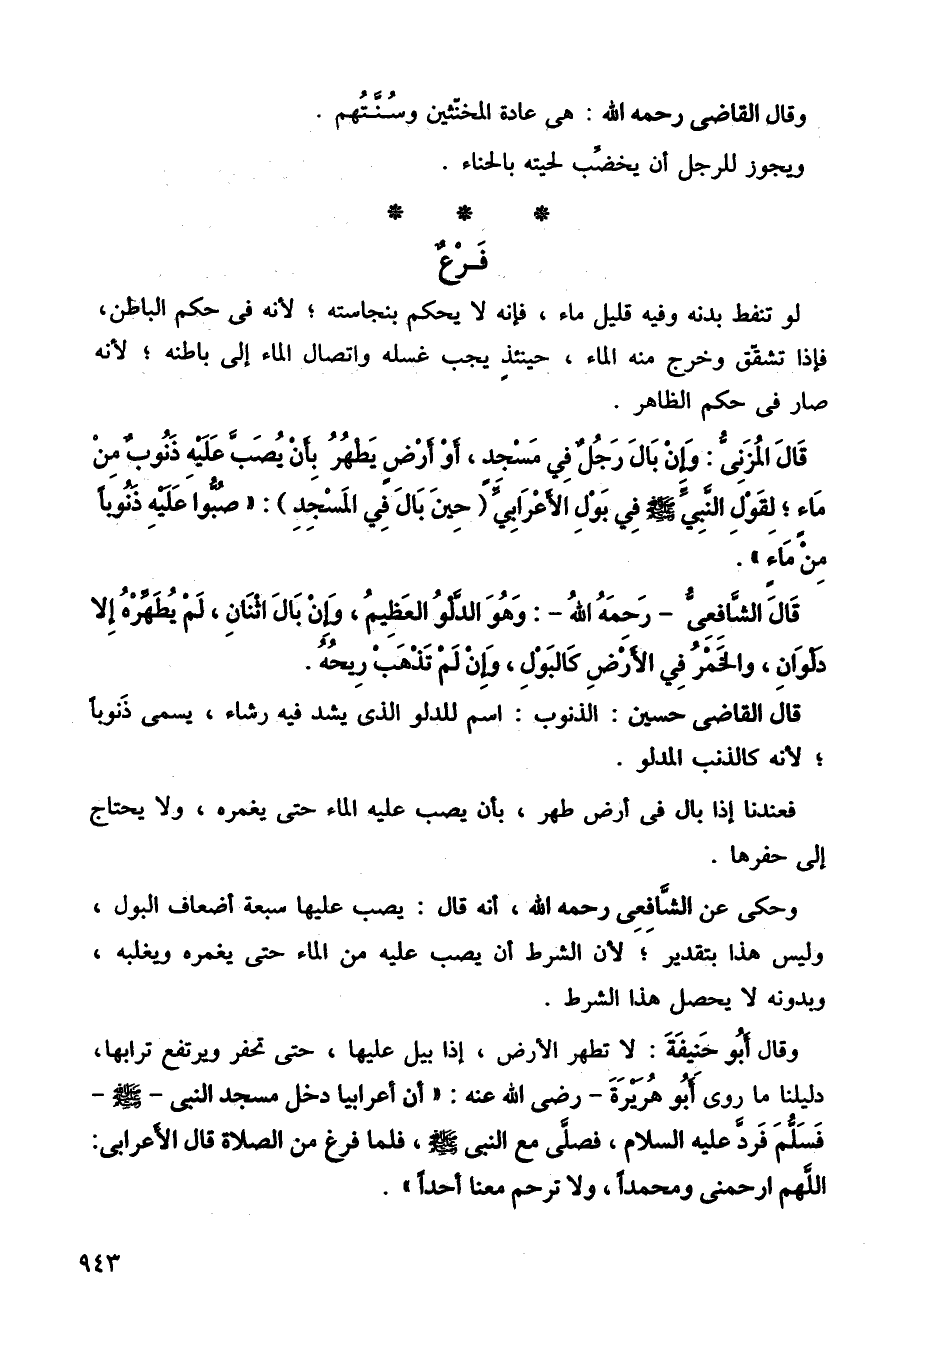 وقال القاضى رحمه الله : هى عادة المخنّثين وسُنَّتُهم .
ويجوز للرجل أن يخضُب لحيته بالحناء .
* * *
فَـرْعٌ
لو تنفط بدنه وفيه قليل ماء ، فإنه لا يحكم بنجاسته ؛ لأنه فى حكم الباطن،
فإذا تشقّق وخرج منه الماء ، حينئذٍ يجب غسله واتصال الماء إلى باطنه ؛ لأنه
صار فى حكم الظاهر .
قَالَ المُزَنِىُّ : وَإِنْ بَالَ رَجُلٌ فِي مَسْجِدٍ ، أَوْ أَرْضٍ يَطْهُرُ بِأَنْ يُصَبَّ عَلَيْهِ ذَنُوبٌ مِنْ
مَاءٍ ؛ لِقَوْلِ النَّبِيِّ ﷺ فِي بَوْلِ الأَعْرَابِيِّ ( حِينَ بَالَ فِي المَسْجِدِ ) : « صبُّوا عَلَيْهِ ذَنُوباً
مِنْ مَاءٍ » .
قَالَ الشَّافعىُّ – رَحمَهُ اللهُ – : وَهُوَ الدَّلْوُ العَظِيمُ ، وَإِنْ بَالَ اثْنَانِ ، لَمْ يُطَهِّرْهُ إِلا
دَلْوَانِ ، والخَمْرُ فِي الأَرْضِ كَالبَوْلِ ، وَإِنْ لَمْ تَذْهَبْ رِيحُهُ .
قال القاضى حسين : الذنوب : اسم للدلو الذى يشد فيه رشاء ، يسمى ذَنوباً
؛ لأنه كالذنب المدلو .
فعندنا إذا بال فى أرض طهر ، بأن يصب عليه الماء حتى يغمره ، ولا يحتاج
إلى حفرها .
وحكى عن الشَّافِعِى رحمه الله ، أنه قال : يصب عليها سبعة أضعاف البول ،
وليس هذا بتقدير ؛ لأن الشرط أن يصب عليه من الماء حتى يغمره ويغلبه ،
وبدونه لا يحصل هذا الشرط .
وقال أَبُو حَنِيفَةَ : لا تطهر الأرض ، إذا بيل عليها ، حتى تحفر ويرتفع ترابها،
دليلنا ما روى أَبُو هُرَيْرَةَ – رضى الله عنه : « أن أعرابيا دخل مسجد النبى – ﷺ –
فَسَلَّمَ فَردَّ عليه السلام ، فصلَّى مع النبى ﷺ ، فلما فرغ من الصلاة قال الأعرابى:
اللَّهم ارحمنى ومحمداً ، ولا ترحم معنا أحداً » .
٩٤٣